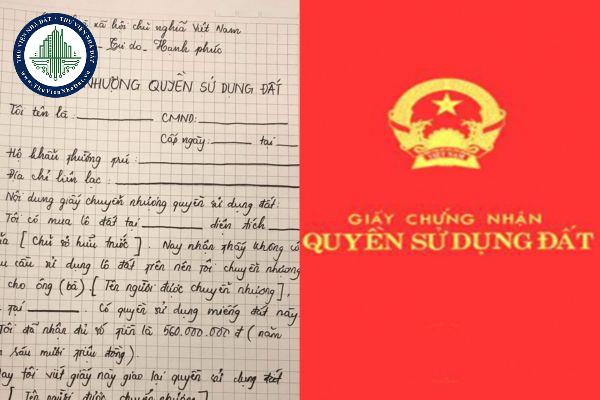 THƯ VIỆN NHÀ ĐẤT
www.ThuVienNhaDat.vn
xã hội chủ nghĩa Việt Nam
Tự do - Hạnh phúc
NHƯỜNG QUYỀN SỬ DỤNG ĐẤT
Tôi tên là : CMND:
Cấp ngày: tại
Hộ khẩu thường trú :
Địa chỉ liên lạc :
Nội dung giấy chuyển nhượng quyền sử dụng đất:
Tôi có mua lô đất tại diện tích
của [ Chủ sở hữu trước ]. Nay nhận thấy không có
cầu sử dụng lô đất trên nên tôi chuyển nhượng
cho ông (bà) [ Tên người được chuyển nhượng ],
tại . Có quyền sử dụng miếng đất này
Tôi đã nhận đủ số tiền là 560.000.000 đ ( năm
sáu mươi triệu đồng ).
nay tôi viết giấy này giao lại quyền sử dụng đất
[ Tên người được chuyển nhượng ]
VIỆT NAM
GIẤY CHỨNG NHẬN
QUYỀN SỬ DỤNG ĐẤT